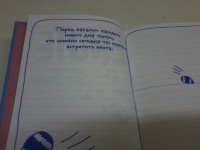 Перед началом каждого
нового дня помни,
что именно сегодня ты можешь
встретить